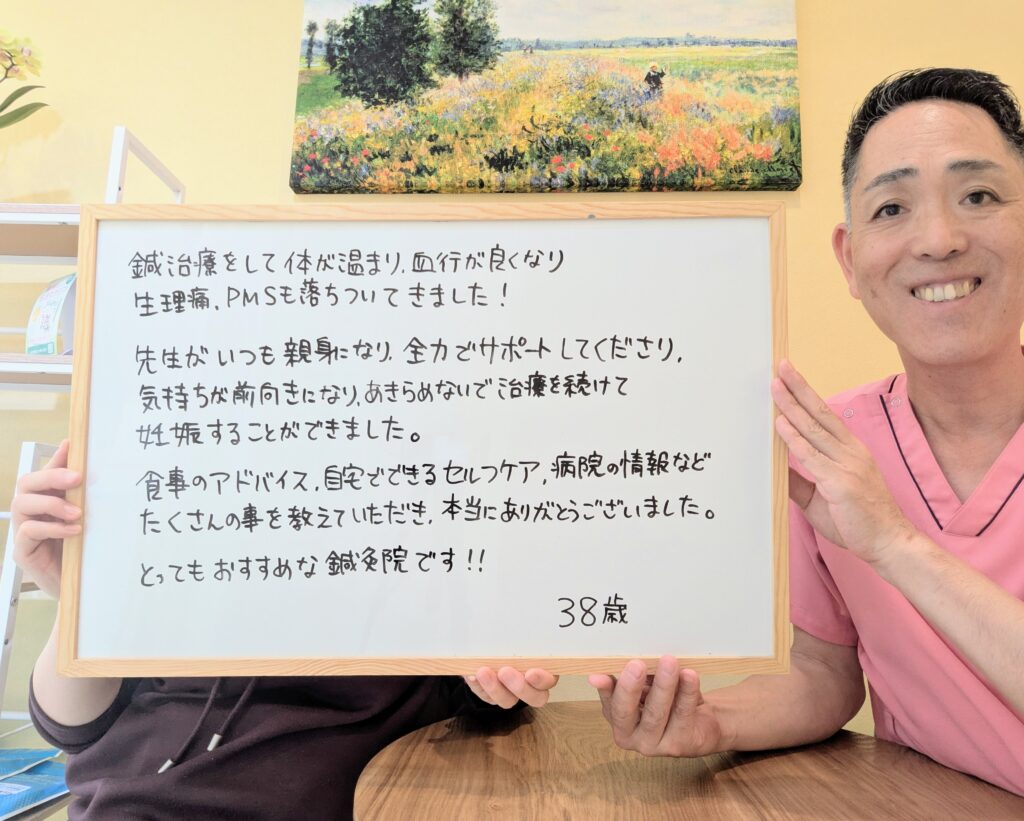 鍼治療をして体が温まり、血行が良くなり
生理痛、PMSも落ちついてきました！
先生がいつも親身になり、全力でサポートしてくださり、
気持ちが前向きになり、あきらめないで治療を続けて
妊娠することができました。
食事のアドバイス、自宅でできるセルフケア、病院の情報など
たくさんの事を教えていただき、本当にありがとうございました。
とってもおすすめな鍼灸院です!!
38歳